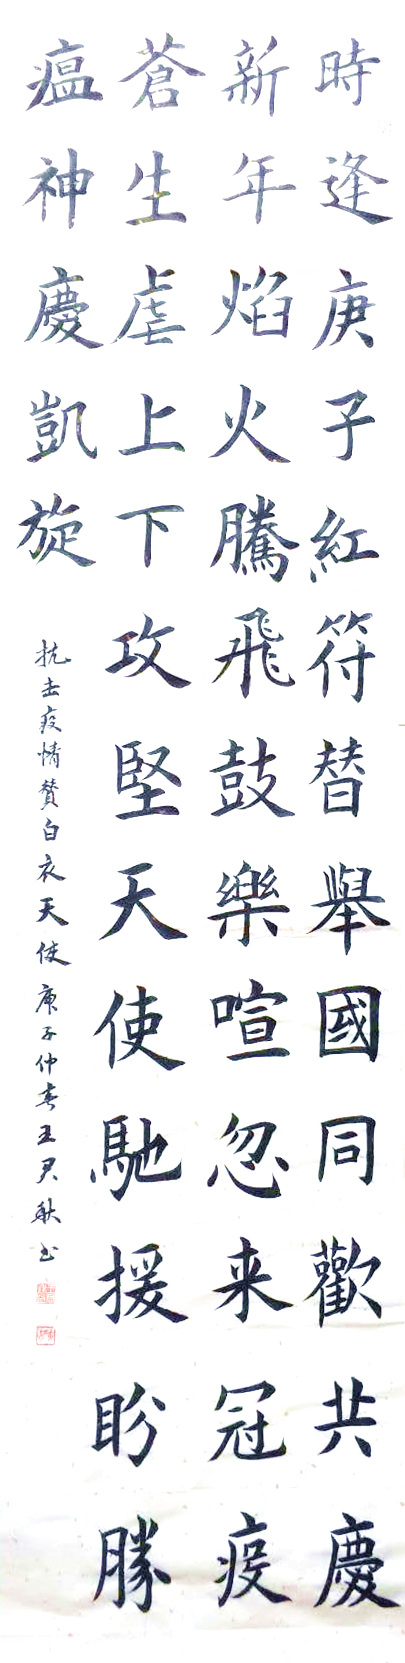 時逢庚子紅符替舉國同歡共慶
新年焰火騰飛鼓樂喧忽来冠疫
蒼生虐上下攻堅天使馳援盼勝
瘟神慶凱旋
抗击疫情贊白衣天使庚子仲春王君耿书